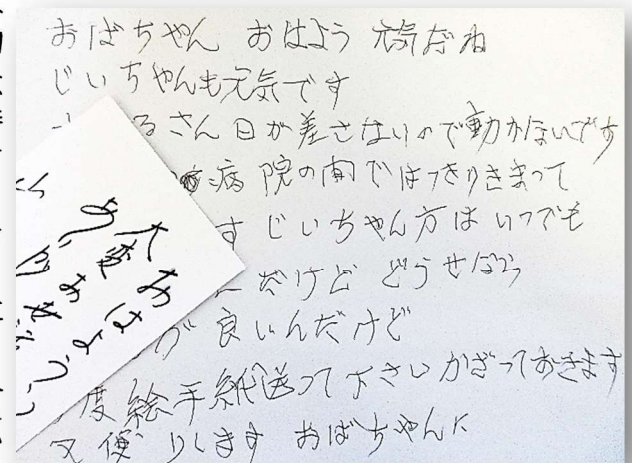 おばちゃん おはよう 元気だね
じいちゃんも元気です
るさん日が差さないので動かないです
病院の南ではっきりきまって
す じいちゃん方は いつでも
だけど どうせなら
が 良いんだけど
度絵手紙送って下さいかざっておきます
又便りします おばちゃんに
おはよう